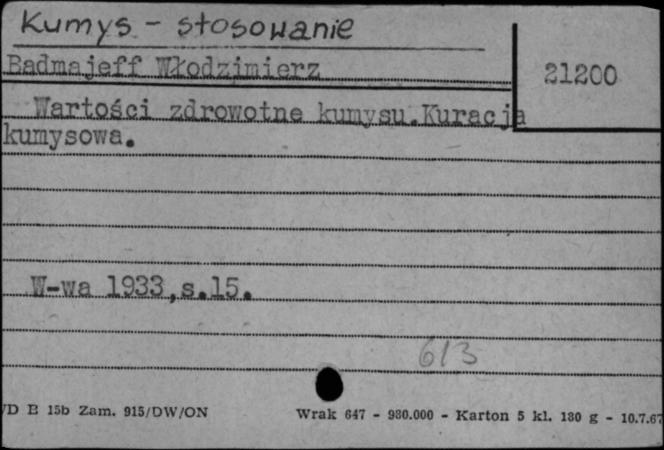 Kumys - stosowanie
Badmajeff Włodzimierz
21200
Wartości zdrowotne kumysu.Kuracja
kumysowa.
W-wa 1933,s.15.
613
/D B 15b Zam. 915/DW/ON
Wrak 647 - 980.000 - Karton 5 kl. 180 g - 10.7.67